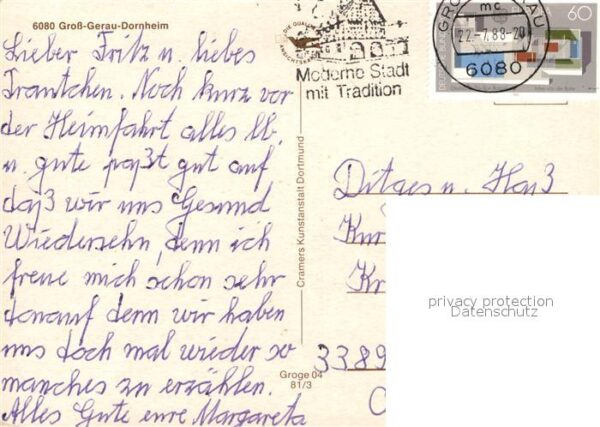 6080 Groß-Gerau-Dornheim
Lieber Fritz u. liebes
Trautchen. Noch kurz vor
der Heimfahrt alles lb.
u. gute paßt gut auf
daß wir uns Gesund
Wiedersehn, denn ich
freue mich schon sehr
darauf denn wir haben
uns doch mal wieder so
manches zu erzählen.
Alles Gute eure Margareta
Moderne Stadt
mit Tradition
22.-7.88-20
mc
6080
60
Cramers Kunstanstalt Dortmund
Groge 04
81/3
privacy protection
Datenschutz
3389